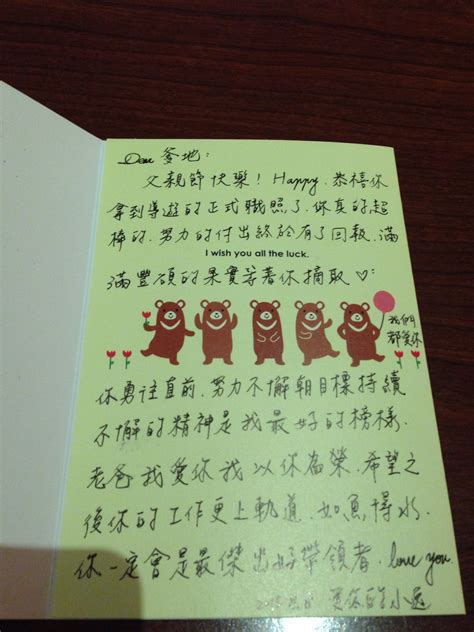 Dear 爹地：
父親節快樂！Happy. 恭禧你
拿到導遊的正式職照了，你真的超
棒的，努力的付出終於有了回報，滿
I wish you all the luck.
滿豐碩的果實等著你摘取♡
我們
都愛你
你勇往直前，努力不懈朝目標持續
不懈的精神是我最好的榜樣，
老爸我愛你我以你為榮，希望之
後你的工作更上軌道，如魚得水，
你一定會是最傑出好帶領者，love you.
愛你的小